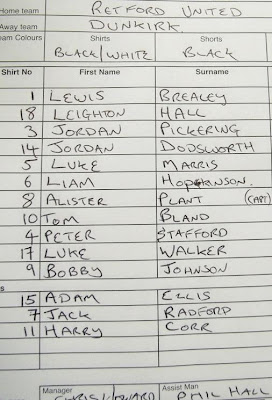 Home team RETFORD UNITED
Away team DUNKIRK
Team Colours Shirts Shorts
BLACK/WHITE BLACK
Shirt No First Name Surname
1 LEWIS BREALEY
18 LEIGHTON HALL
3 JORDAN PICKERING
14 JORDAN DODSWORTH
5 LUKE MARRIS
6 LIAM HOPKINSON.
8 ALISTER PLANT (CAPT)
10 TOM BLAND
4 PETER STAFFORD
17 LUKE WALKER
9 BOBBY JOHNSON
15 ADAM ELLIS
7 JACK RADFORD
11 HARRY CORR
Manager Assist Man
CHRIS PHIL HALL